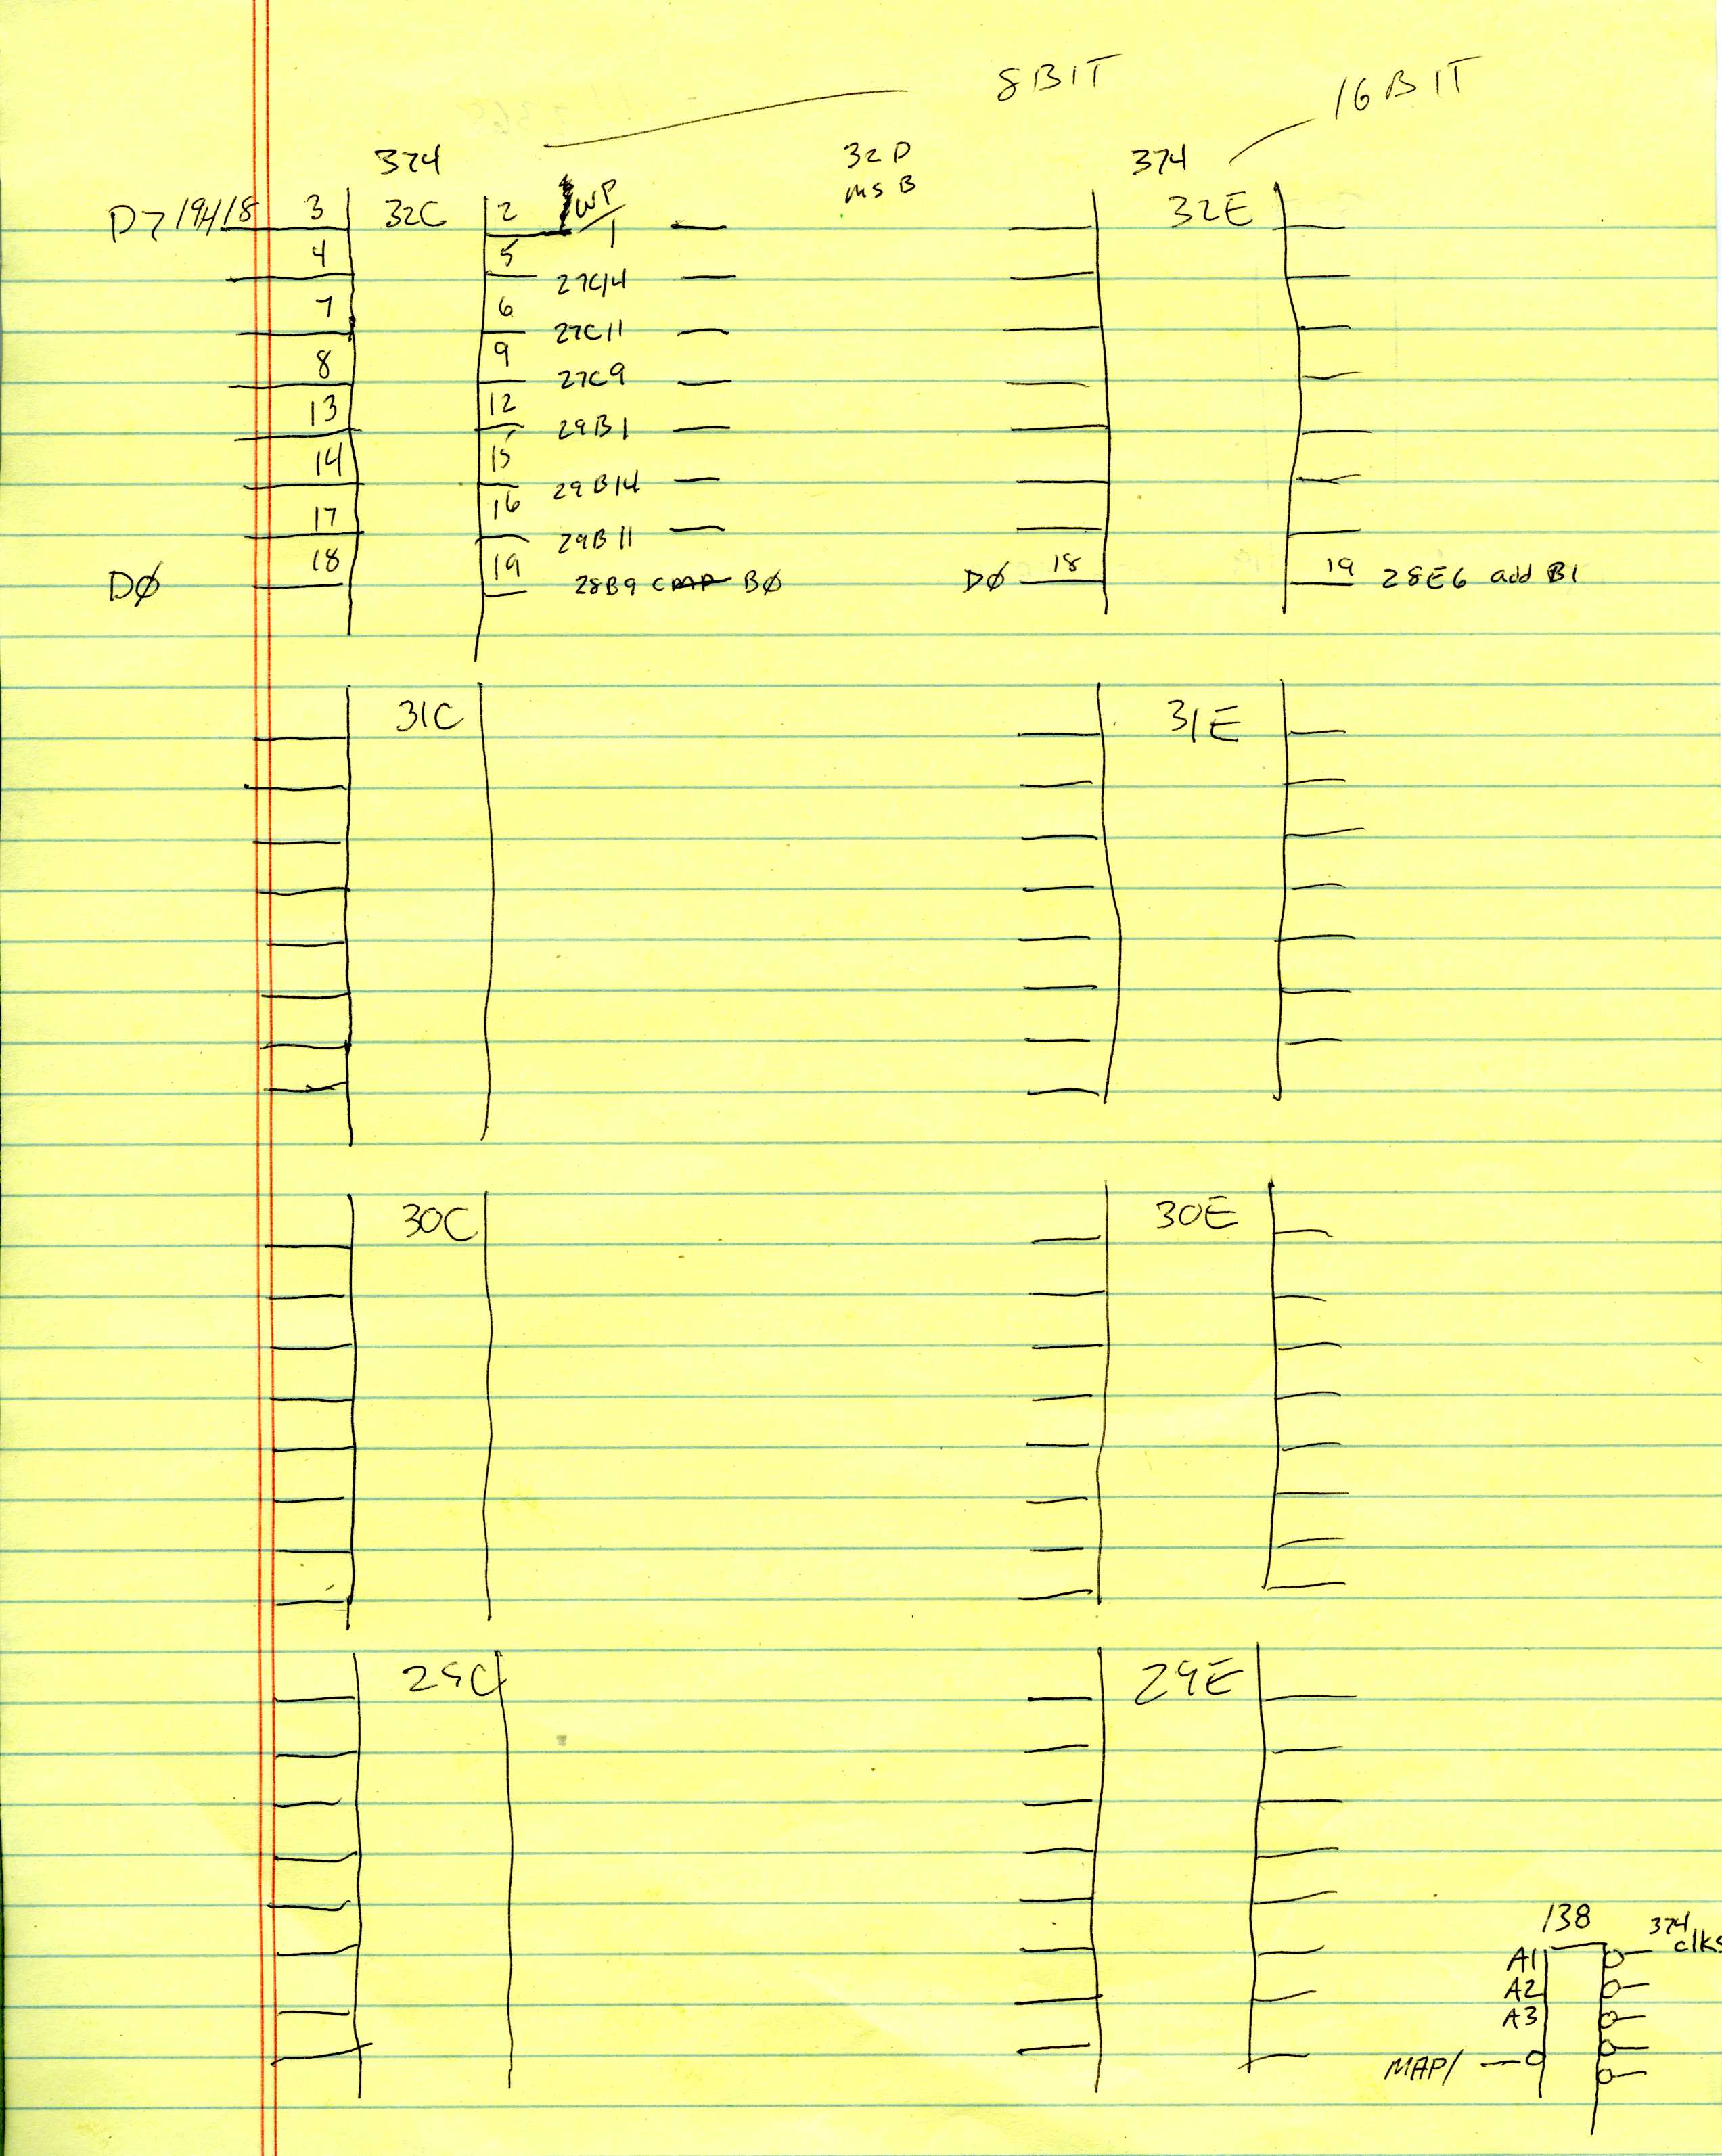 8BIT
16BIT
374
32D
MSB
374
D7 19H18 3 32C 2 WP/ 32E
1
4 5
27C14
7 6
27C11
8 9
27C9
13 12
29B1
14 15
29B14
17 16
29B11
D∅ 18 19 28B9 CMP B∅ D∅ 18 19 28E6 add B1
31C 31E
30C 30E
29C 29E
138 374
clks
A1
A2
A3
MAP/